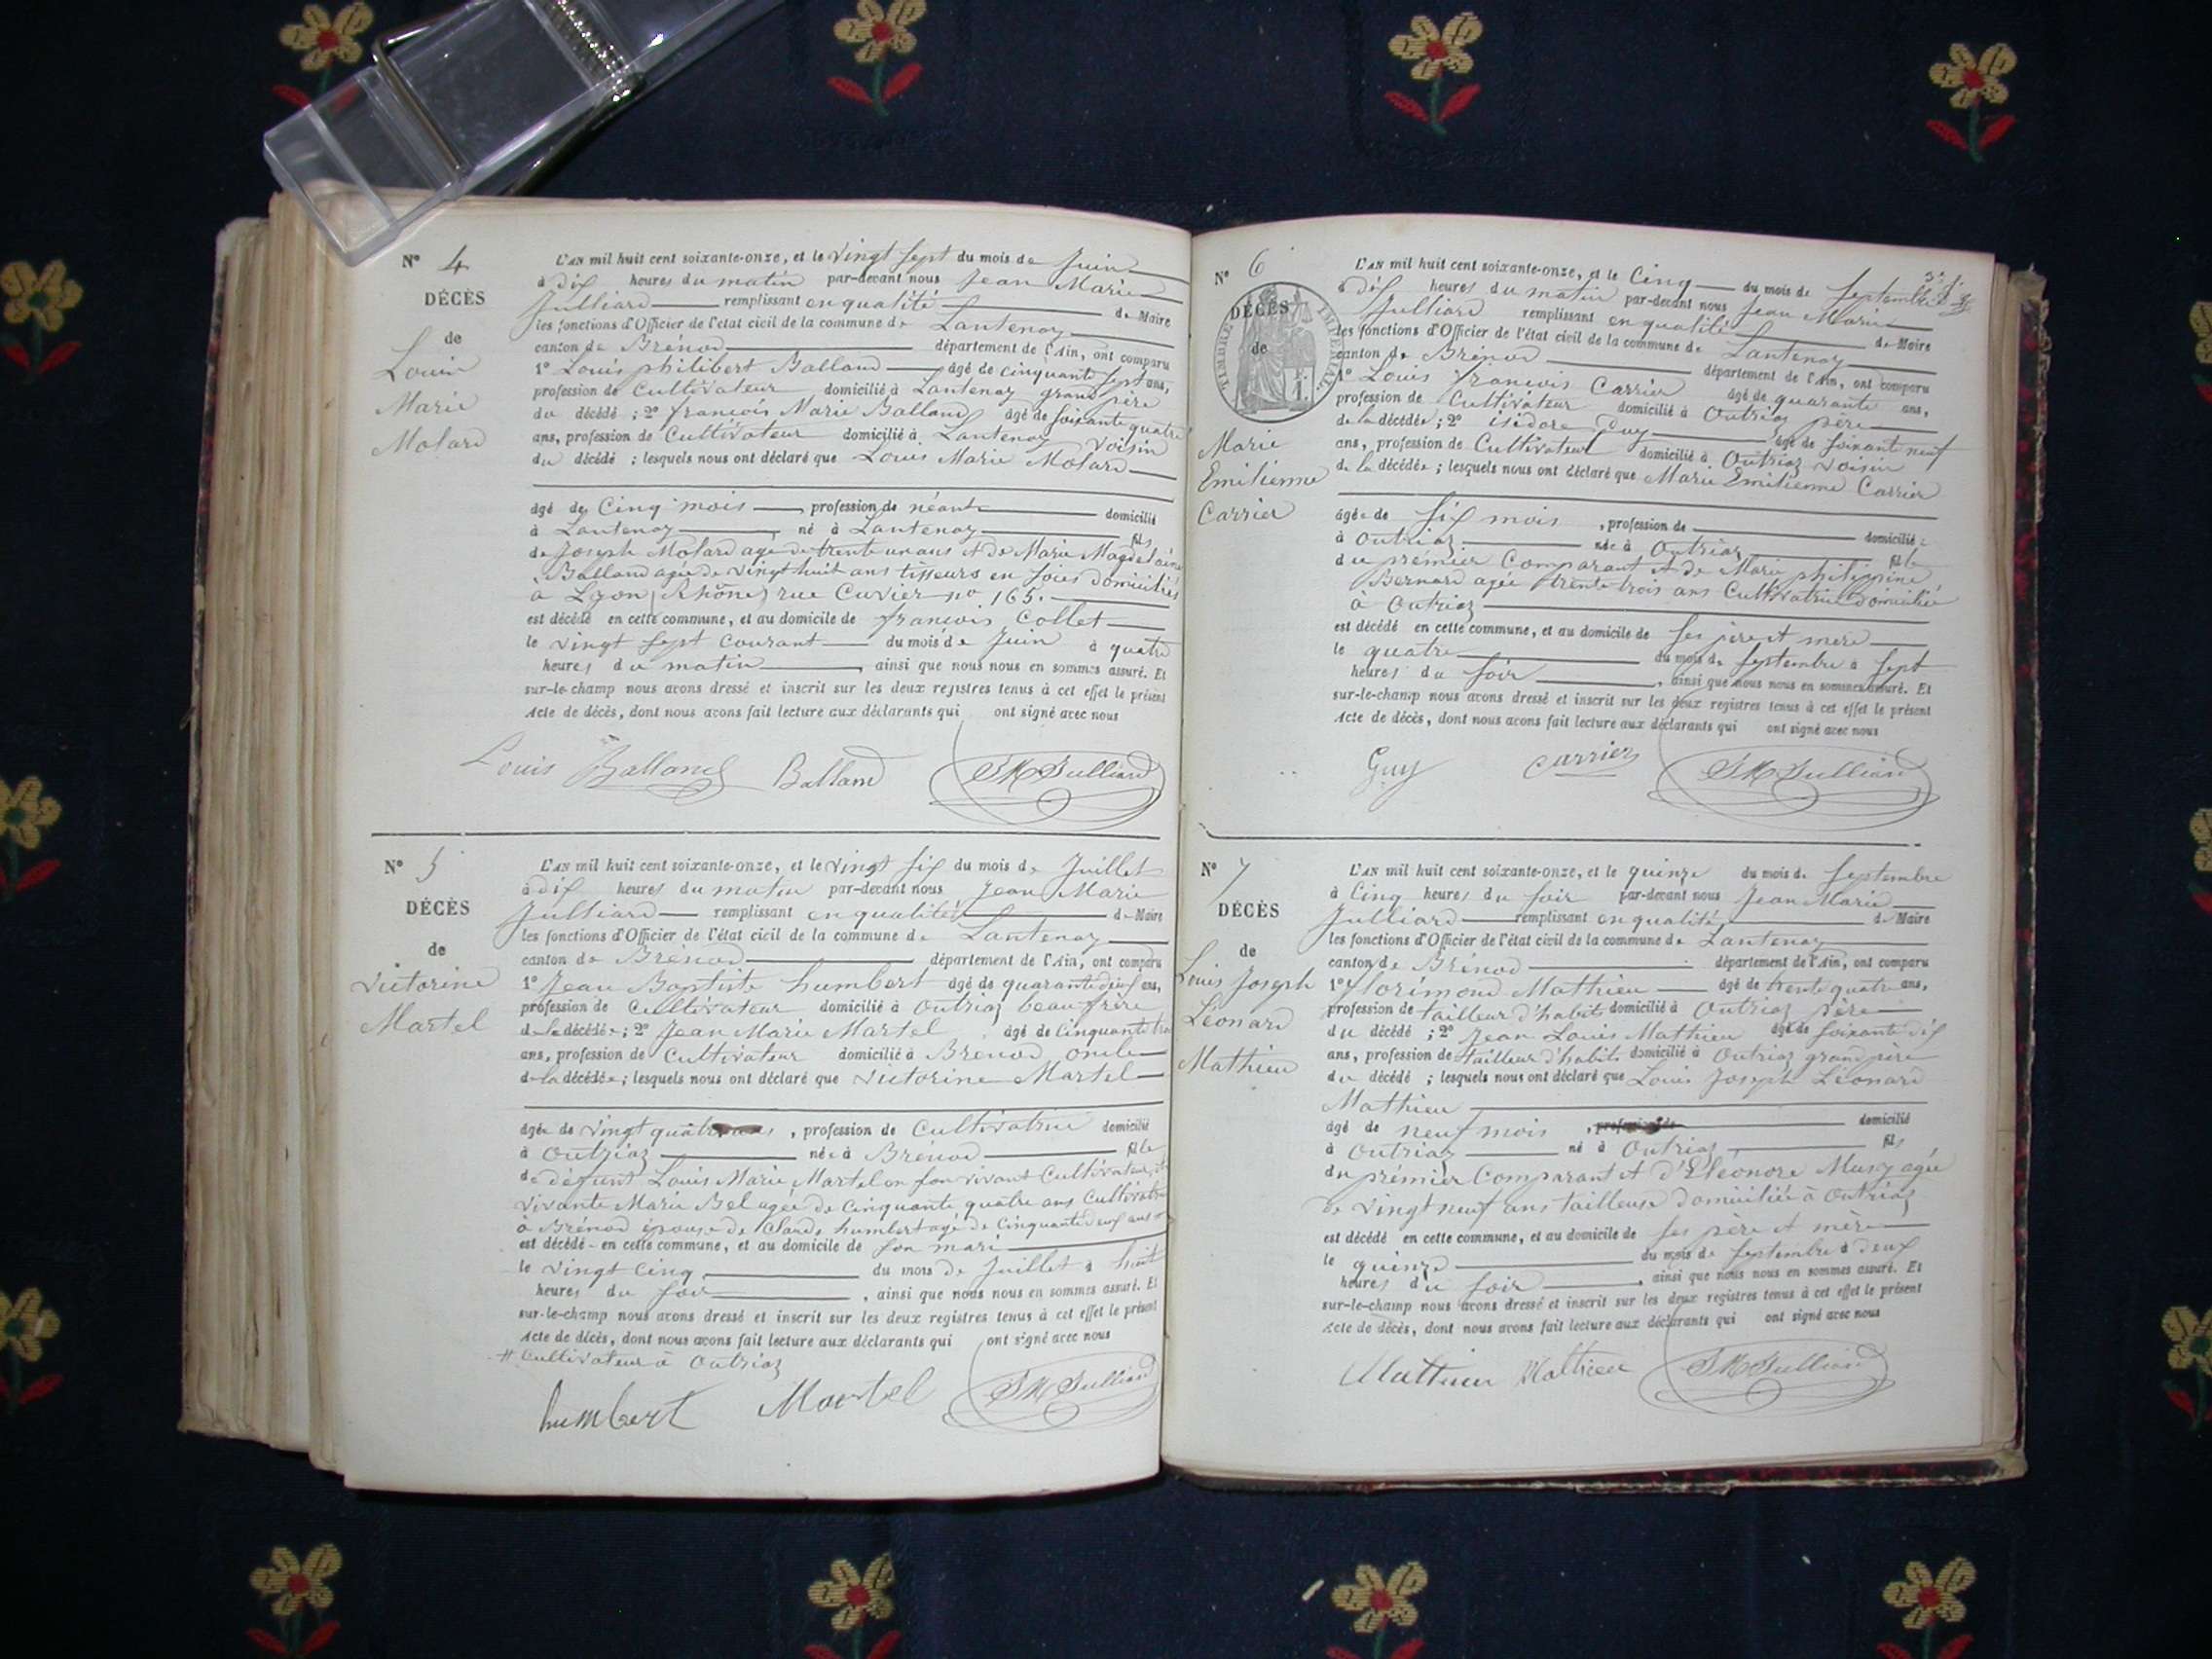 N° 4
DÉCÈS
de
Louis
Marie
Molard
L'AN mil huit cent soixante-onze, et le vingt sept du mois de Juin
à dix heures du matin par-devant nous Jean Marie
Julliard remplissant en qualité de Maire
les fonctions d'Officier de l'état civil de la commune de Lantenay
canton de Brénod département de l'Ain, ont comparu
1° Louis philibert Balland âgé de cinquante sept ans,
profession de Cultivateur domicilié à Lantenay grand père
du décédé ; 2° françois Marie Balland âgé de soixante quatre
ans, profession de Cultivateur domicilié à Lantenay voisin
du décédé ; lesquels nous ont déclaré que Louis Marie Molard
âgé de Cinq mois , profession de néant domicilié
à Lantenay né à Lantenay fils
de Joseph Molard agé de trente un ans et de Marie Magdelaine
Balland agée de vingt huit ans tisseurs en soies domiciliés
à Lyon (Rhône) rue Cuvier no 165.
est décédé en cette commune, et au domicile de françois Collet
le vingt sept courant du mois de Juin à quatre
heures du matin , ainsi que nous nous en sommes assuré. Et
sur-le-champ nous avons dressé et inscrit sur les deux registres tenus à cet effet le présent
Acte de décès, dont nous avons fait lecture aux déclarants qui ont signé avec nous
Louis Balland Balland JM Julliard
N° 5
DÉCÈS
de
Victorine
Martel
L'AN mil huit cent soixante-onze, et le vingt six du mois de Juillet
à dix heures du matin par-devant nous Jean Marie
Julliard remplissant en qualité de Maire
les fonctions d'Officier de l'état civil de la commune de Lantenay
canton de Brénod département de l'Ain, ont comparu
1° Jean Baptiste humbert âgé de quarante deux ans,
profession de Cultivateur domicilié à Outriaz beau frère
de la décédée ; 2° Jean Marie Martel âgé de Cinquante
ans, profession de Cultivateur domicilié à Brénod oncle
de la décédée ; lesquels nous ont déclaré que Victorine Martel
âgée de vingt quatre ans , profession de Cultivatrice domicilié
à Outriaz née à Brénod fille
de défunt Louis Marie Martel en son vivant Cultivateur, et
vivante Marie Bel agée de Cinquante quatre ans Cultivatrice
à Brénod épouse de Claude humbert agé de Cinquante deux ans #
est décédé en cette commune, et au domicile de son mari
le vingt Cinq du mois de Juillet à huit
heures du soir , ainsi que nous nous en sommes assuré. Et
sur-le-champ nous avons dressé et inscrit sur les deux registres tenus à cet effet le présent
Acte de décès, dont nous avons fait lecture aux déclarants qui ont signé avec nous
# Cultivateur à Outriaz
humbert Martel JM Julliard
N° 6
DÉCÈS
de
TIMBRE IMPÉRIAL
Marie
Emilienne
Carrier
L'AN mil huit cent soixante-onze, et le Cinq du mois de Septembre
à dix heures du matin par-devant nous Jean Marie
Julliard remplissant en qualité de Maire
les fonctions d'Officier de l'état civil de la commune de Lantenay
canton de Brénod département de l'Ain, ont comparu
1° Louis françois Carrier âgé de quarante ans,
profession de Cultivateur domicilié à Outriaz père
de la décédée ; 2° isidore Guy âgé de soixante neuf
ans, profession de Cultivateur domicilié à Outriaz voisin
de la décédée ; lesquels nous ont déclaré que Marie Emilienne Carrier
âgée de six mois , profession de domicilié
à Outriaz née à Outriaz fille
du prémier Comparant et de Marie philippine
Bernard agée trente trois ans Cultivatrice domiciliée
à Outriaz
est décédé en cette commune, et au domicile de ses père et mère
le quatre du mois de Septembre à sept
heures du soir , ainsi que nous nous en sommes assuré. Et
sur-le-champ nous avons dressé et inscrit sur les deux registres tenus à cet effet le présent
Acte de décès, dont nous avons fait lecture aux déclarants qui ont signé avec nous
Guy Carrier JM Julliard
N° 7
DÉCÈS
de
Louis Joseph
Léonard
Mathieu
L'AN mil huit cent soixante-onze, et le quinze du mois de Septembre
à Cinq heures du soir par-devant nous Jean Marie
Julliard remplissant en qualité de Maire
les fonctions d'Officier de l'état civil de la commune de Lantenay
canton de Brénod département de l'Ain, ont comparu
1° florimond Mathieu âgé de trente quatre ans,
profession de tailleur d'habits domicilié à Outriaz père
du décédé ; 2° Jean Louis Mathieu âgé de soixante dix
ans, profession de tailleur d'habits domicilié à Outriaz grand père
du décédé ; lesquels nous ont déclaré que Louis Joseph Léonard
Mathieu
âgé de neuf mois , profession de domicilié
à Outriaz né à Outriaz fils
du prémier Comparant et d'Eléonore Musy agée
de vingt neuf ans tailleuse domiciliée à Outriaz
est décédé en cette commune, et au domicile de ses père et mère
le quinze du mois de Septembre à deux
heures du soir , ainsi que nous nous en sommes assuré. Et
sur-le-champ nous avons dressé et inscrit sur les deux registres tenus à cet effet le présent
Acte de décès, dont nous avons fait lecture aux déclarants qui ont signé avec nous
Mathieu Mathieu JM Julliard